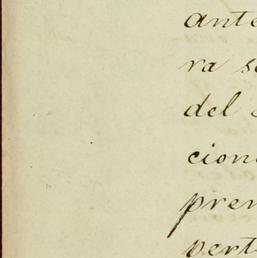 ante
ra s
del
cion
pren
pert